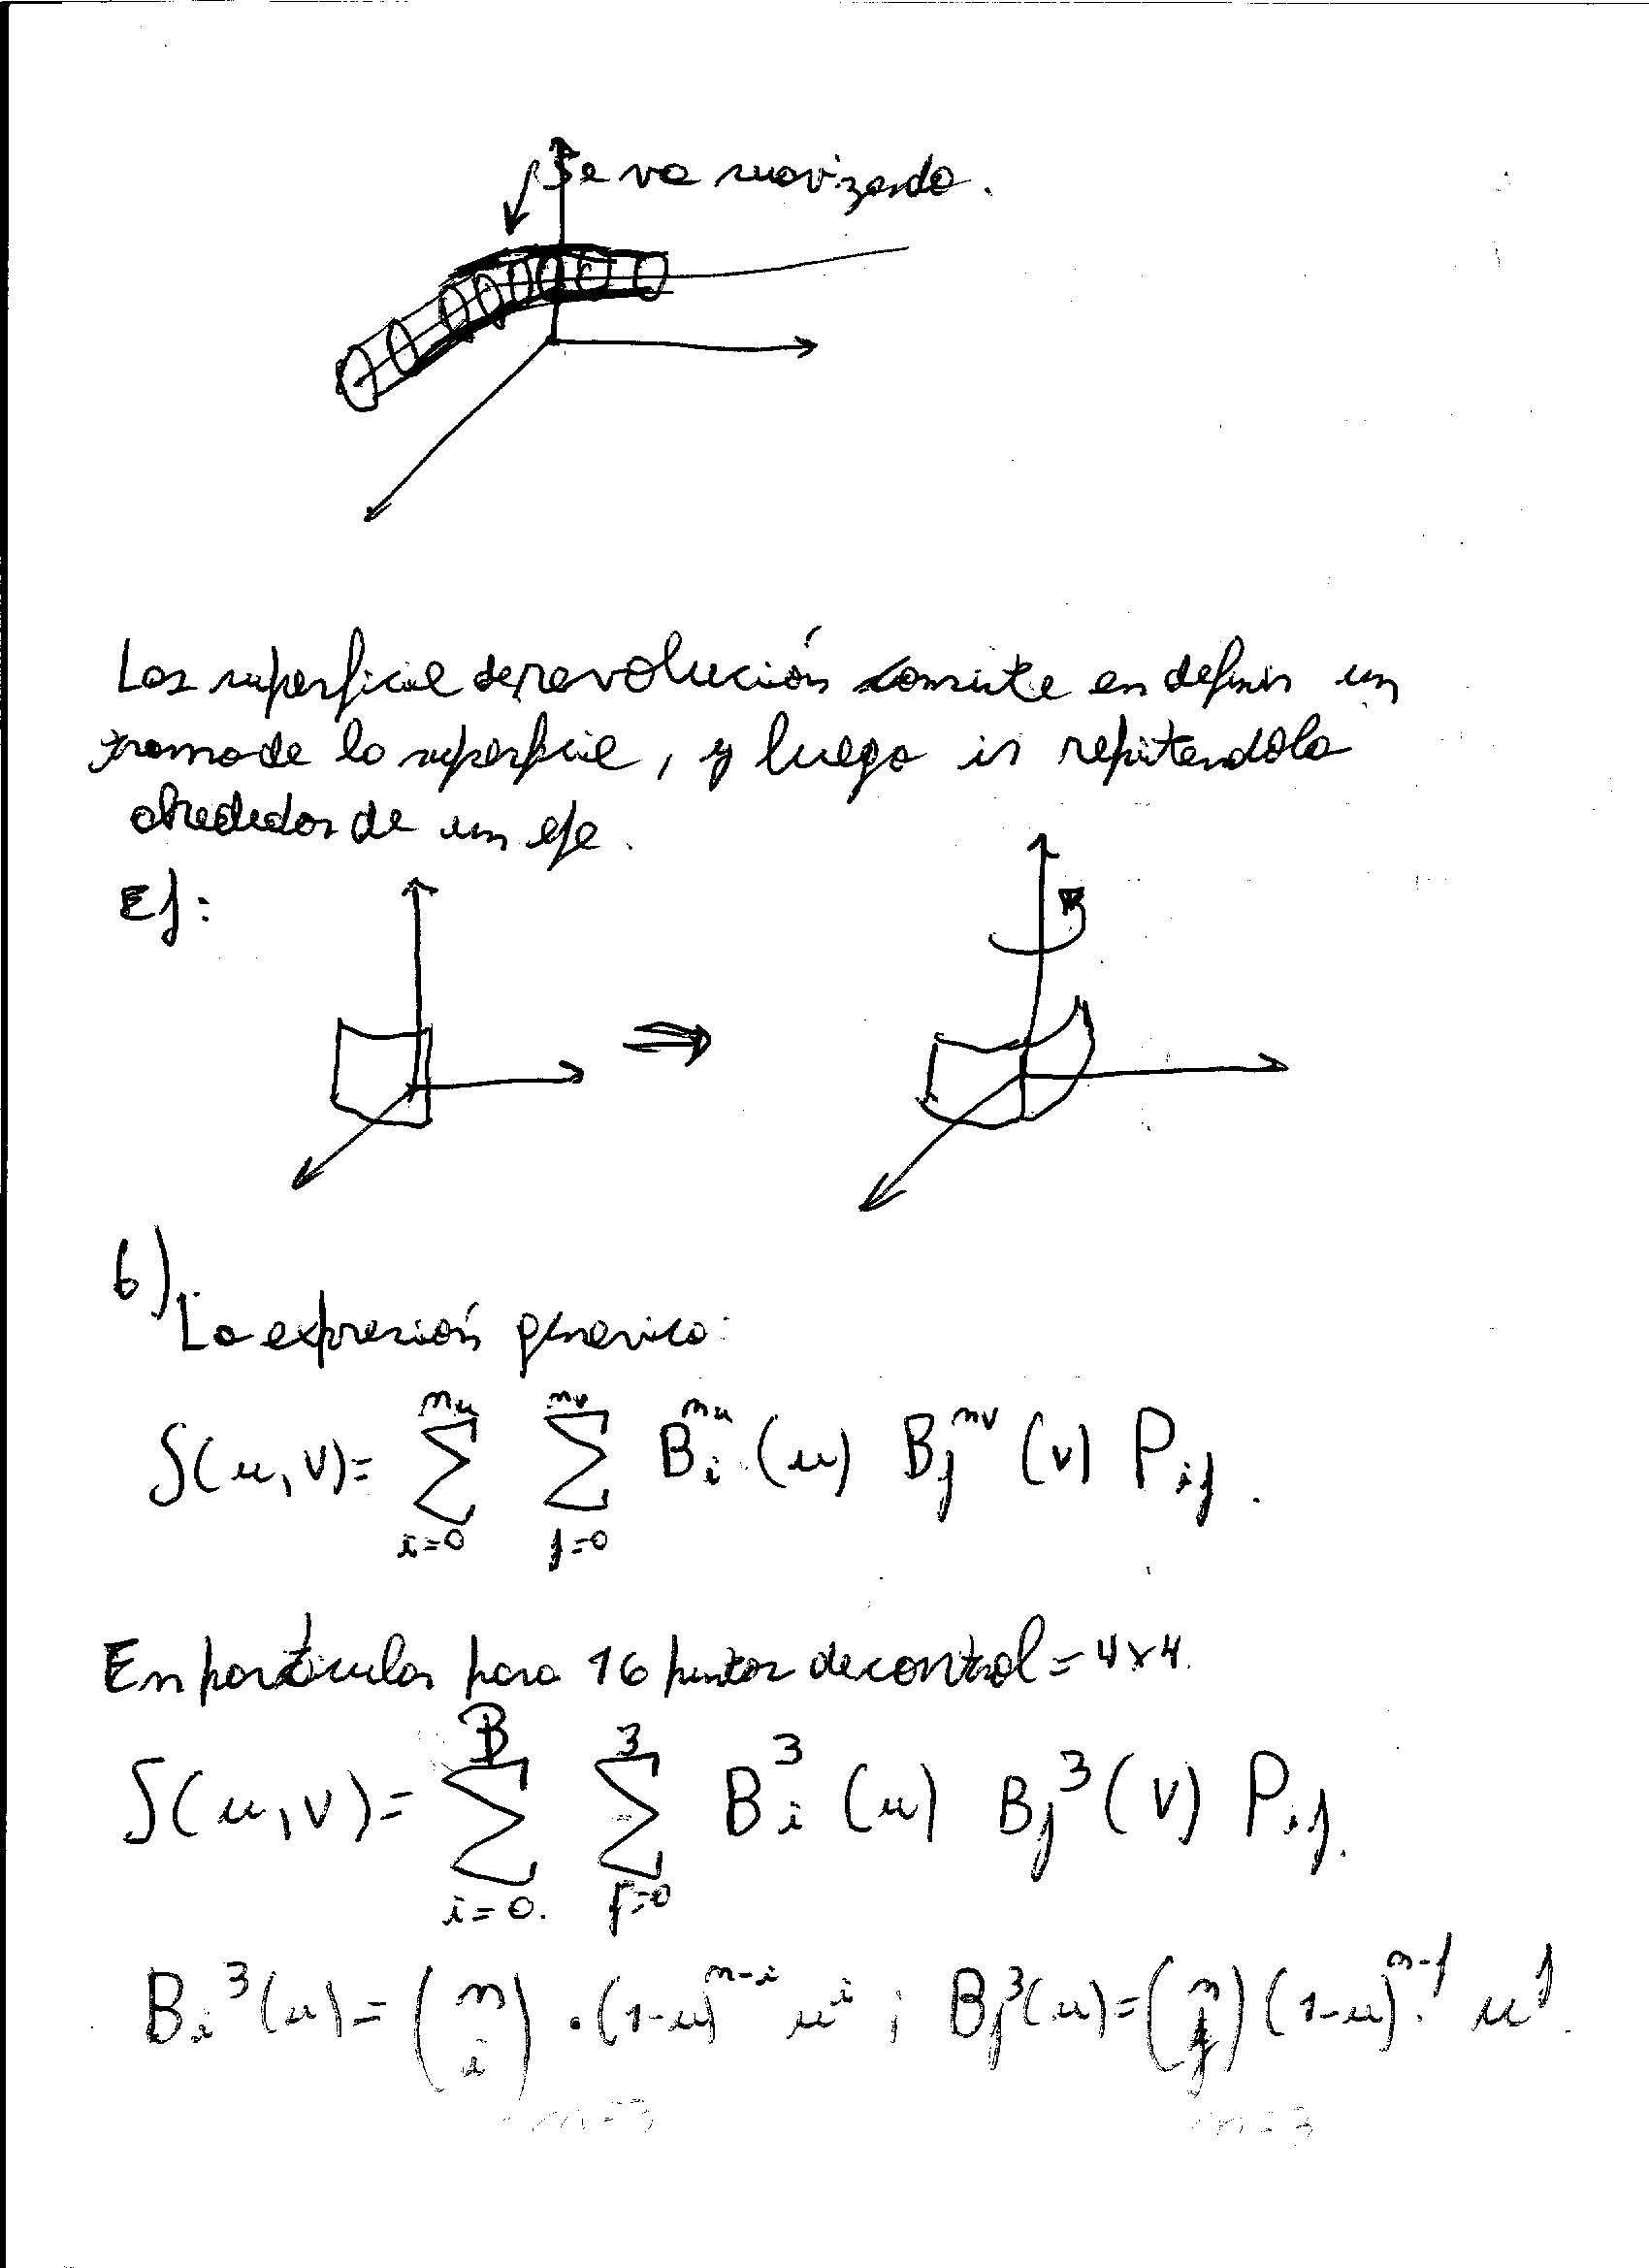 Se va suavizando.
Las superficie de revolución consiste en definir un
tramo de la superficie, y luego ir repitendola
alrededor de un eje.
Ej:
6)
La expresión generica:
S(u,v)= ∑_{i=0}^{nu} ∑_{j=0}^{nv} B_i^{nu}(u) B_j^{nv}(v) P_{ij}.
En particular para 16 puntos de control = 4x4.
S(u,v)= ∑_{i=0.}^{3} ∑_{j=0}^{3} B_i^3(u) B_j^3(v) P_{ij}.
B_i^3(u)= (n i) · (1-u)^{n-i} u^i ; B_j^3(u)= (n j) (1-u)^{n-j} · u^j.
n=3 n=3